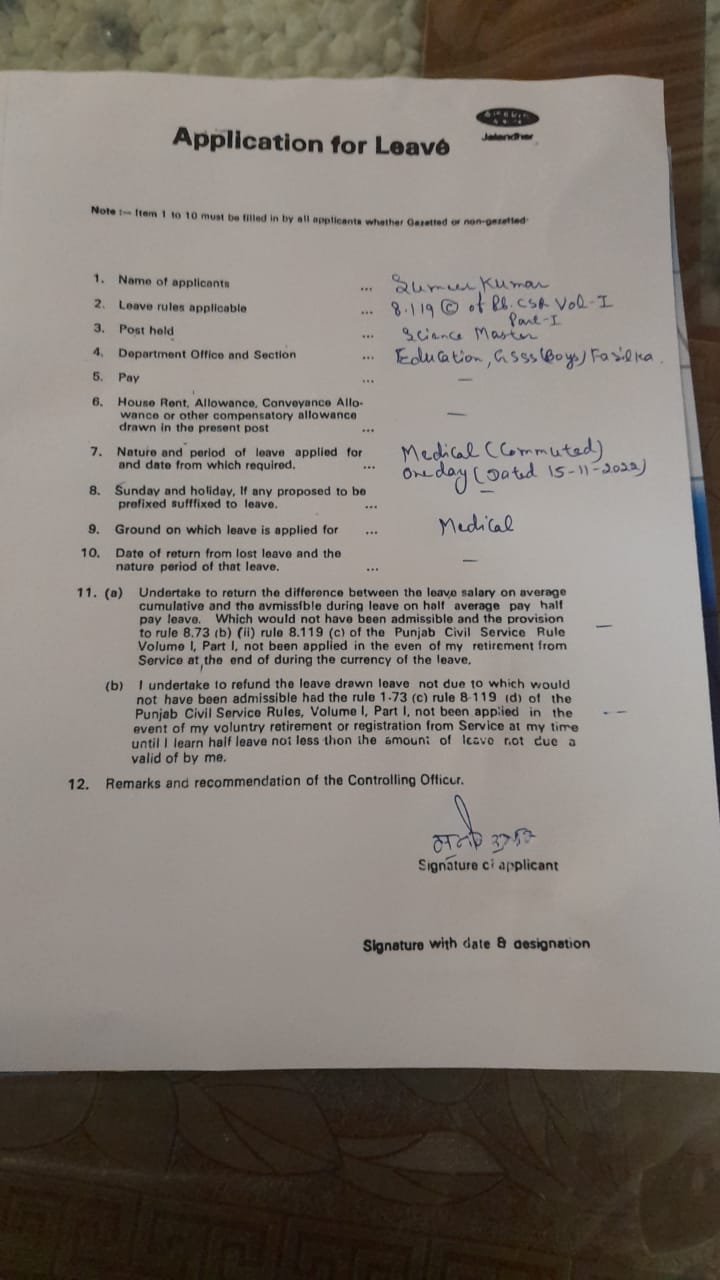 Jalandhar
Application for Leave
Note :— Item 1 to 10 must be filled in by all applicants whether Gazetted or non-gazetted·
1. Name of applicants ... Kumar
2. Leave rules applicable ... 8.119 © of Pb. CSR Vol-I
Part-I
3. Post held ... Science Master
4. Department Office and Section ... Education, GSSS (Boys) Fazilka.
5. Pay ... —
6. House Rent, Allowance, Conveyance Allo-
wance or other compensatory allowance
drawn in the present post ... —
7. Nature and period of leave applied for
and date from which required. ... Medical (Commuted)
One day (Dated 15-11-2022)
8. Sunday and holiday, If any proposed to be
prefixed sufffixed to leave. ... —
9. Ground on which leave is applied for ... Medical
10. Date of return from lost leave and the
nature period of that leave. ... —
11. (a) Undertake to return the difference between the leave salary on average
cumulative and the avmissible during leave on half average pay half
pay leave. Which would not have been admissible and the provision
to rule 8.73 (b) (ii) rule 8.119 (c) of the Punjab Civil Service Rule
Volume I, Part I, not been applied in the even of my retirement from
Service at the end of during the currency of the leave. —
(b) I undertake to refund the leave drawn leave not due to which would
not have been admissible had the rule 1·73 (c) rule 8·119 (d) of the
Punjab Civil Service Rules, Volume I, Part I, not been applied in the
event of my voluntry retirement or registration from Service at my time
until I learn half leave not less thon the amount of leave not due a
valid of by me. —
12. Remarks and recommendation of the Controlling Officur.
Signature of applicant
Signature with date & designation